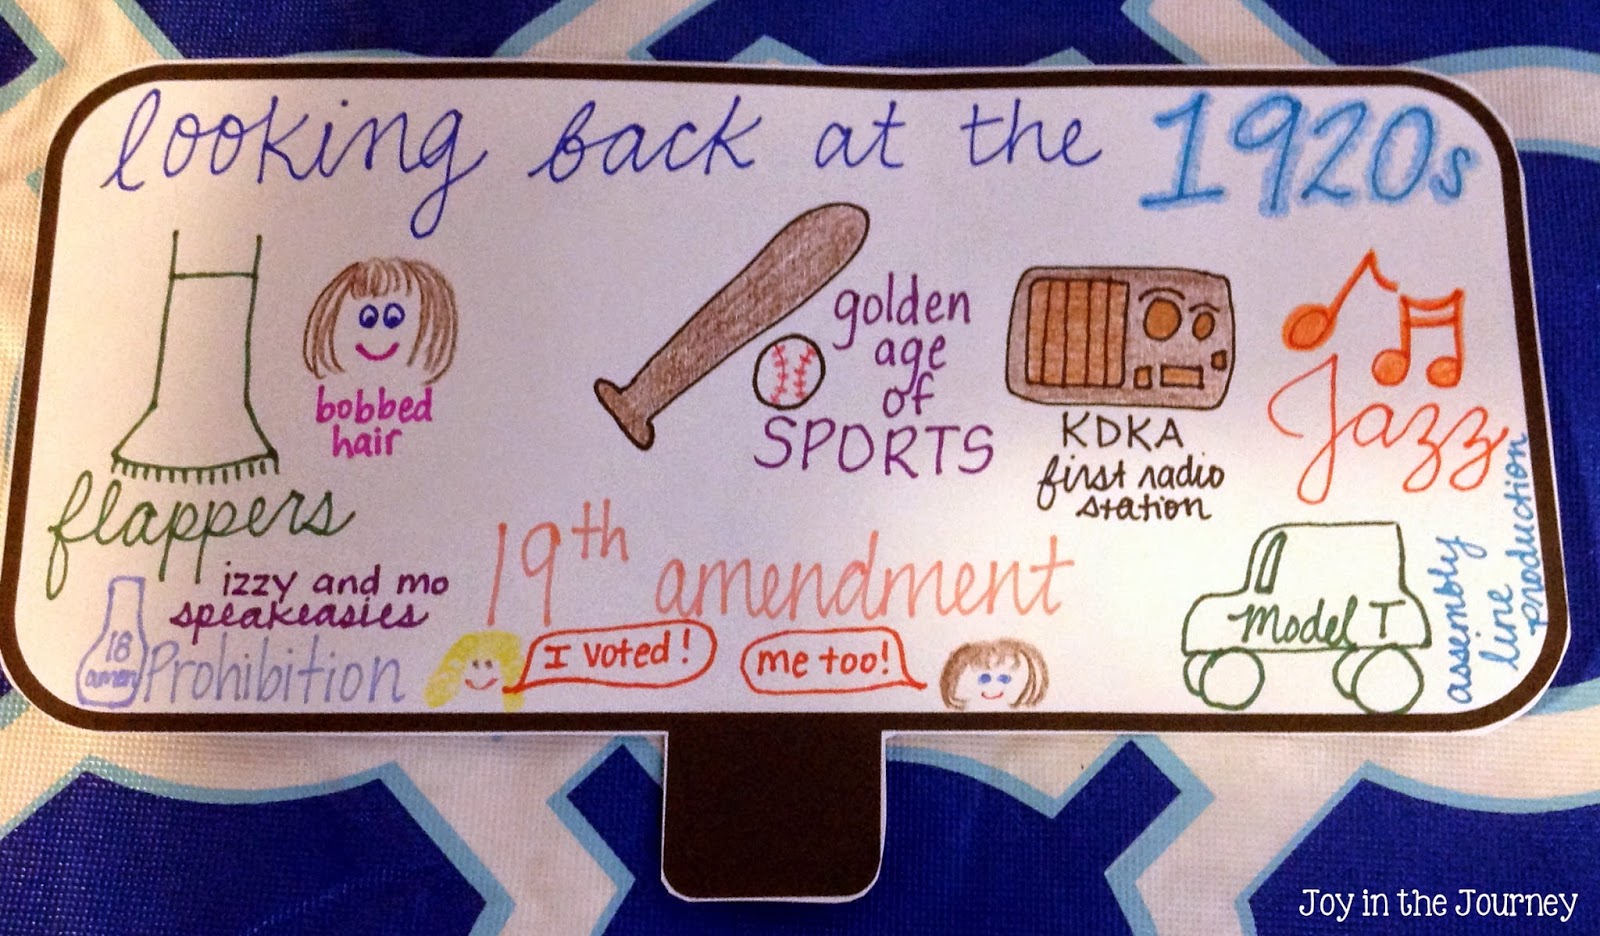 looking back at the 1920s
bobbed
hair
flappers
golden
age
of
SPORTS
KDKA
first radio
station
Jazz
izzy and mo
speakeasies
18
amen
Prohibition
19th amendment
I voted!
me too!
Model T
assembly
line
production
Joy in the Journey